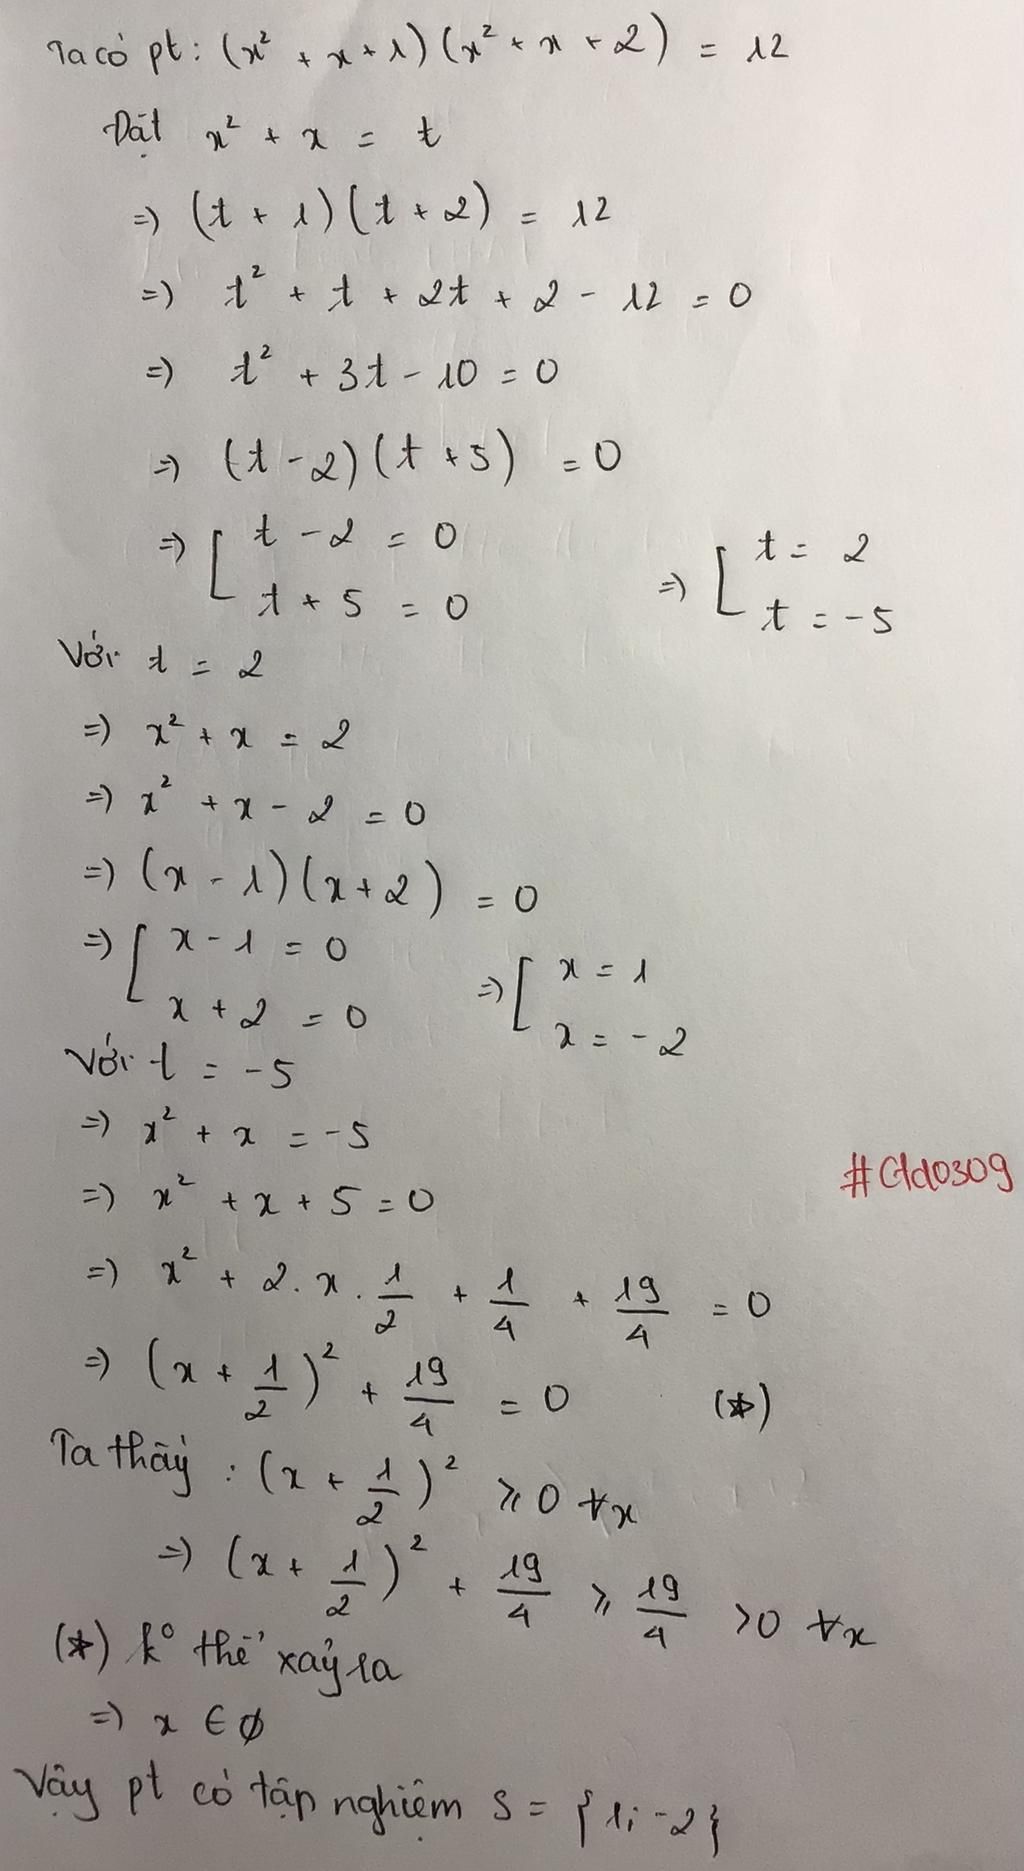 Ta có pt: (x² + x + 1)(x² + x + 2) = 12
Đặt x² + x = t
=> (t + 1)(t + 2) = 12
=> t² + t + 2t + 2 - 12 = 0
=> t² + 3t - 10 = 0
=> (t - 2)(t + 5) = 0
=> [ t - 2 = 0 => [ t = 2
t + 5 = 0 t = -5
Với t = 2
=> x² + x = 2
=> x² + x - 2 = 0
=> (x - 1)(x + 2) = 0
=> [ x - 1 = 0 => [ x = 1
x + 2 = 0 x = -2
Với t = -5
=> x² + x = -5
=> x² + x + 5 = 0
#Cld0309
=> x² + 2.x.1/2 + 1/4 + 19/4 = 0
=> (x + 1/2)² + 19/4 = 0 (*)
Ta thấy : (x + 1/2)² ⩾ 0 ∀x
=> (x + 1/2)² + 19/4 ⩾ 19/4 > 0 ∀x
(*) k° thể xảy ra
=> x ∈ ∅
Vậy pt có tập nghiệm S = {1; -2}